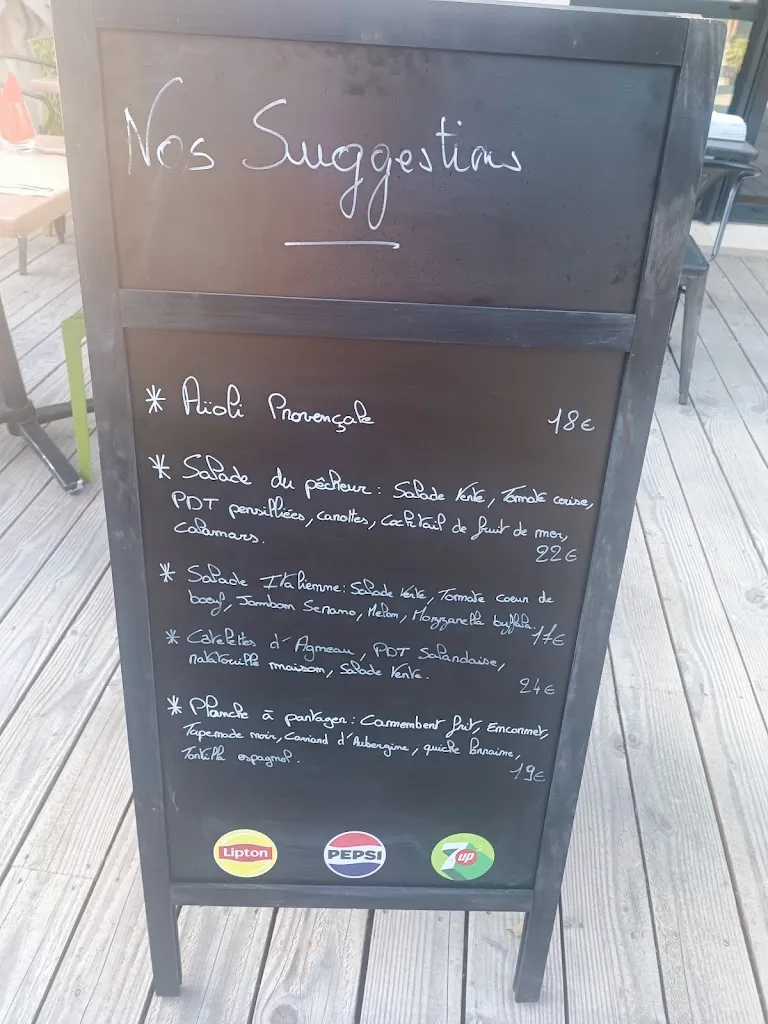 Nos Suggestions
* Aïoli Provençale 18€
* Salade du pêcheur : Salade Verte, Tomate cerise,
PDT persillées, carottes, cocktail de fruit de mer,
calamars.
22€
* Salade Italienne : Salade Verte, Tomate coeur de
boeuf, Jambom Serrano, Melon, Mozzarella buffala. 17€
* Cotelettes d'Agneau, PDT Salardaise,
ratatouille maison, Salade Verte.
24€
* Planche à partager : Camembert frit, Encornet,
Tapenade noir, Caviard d'Aubergine, quiche lorraine,
Tortilla espagnol.
19€
Lipton PEPSI 7up